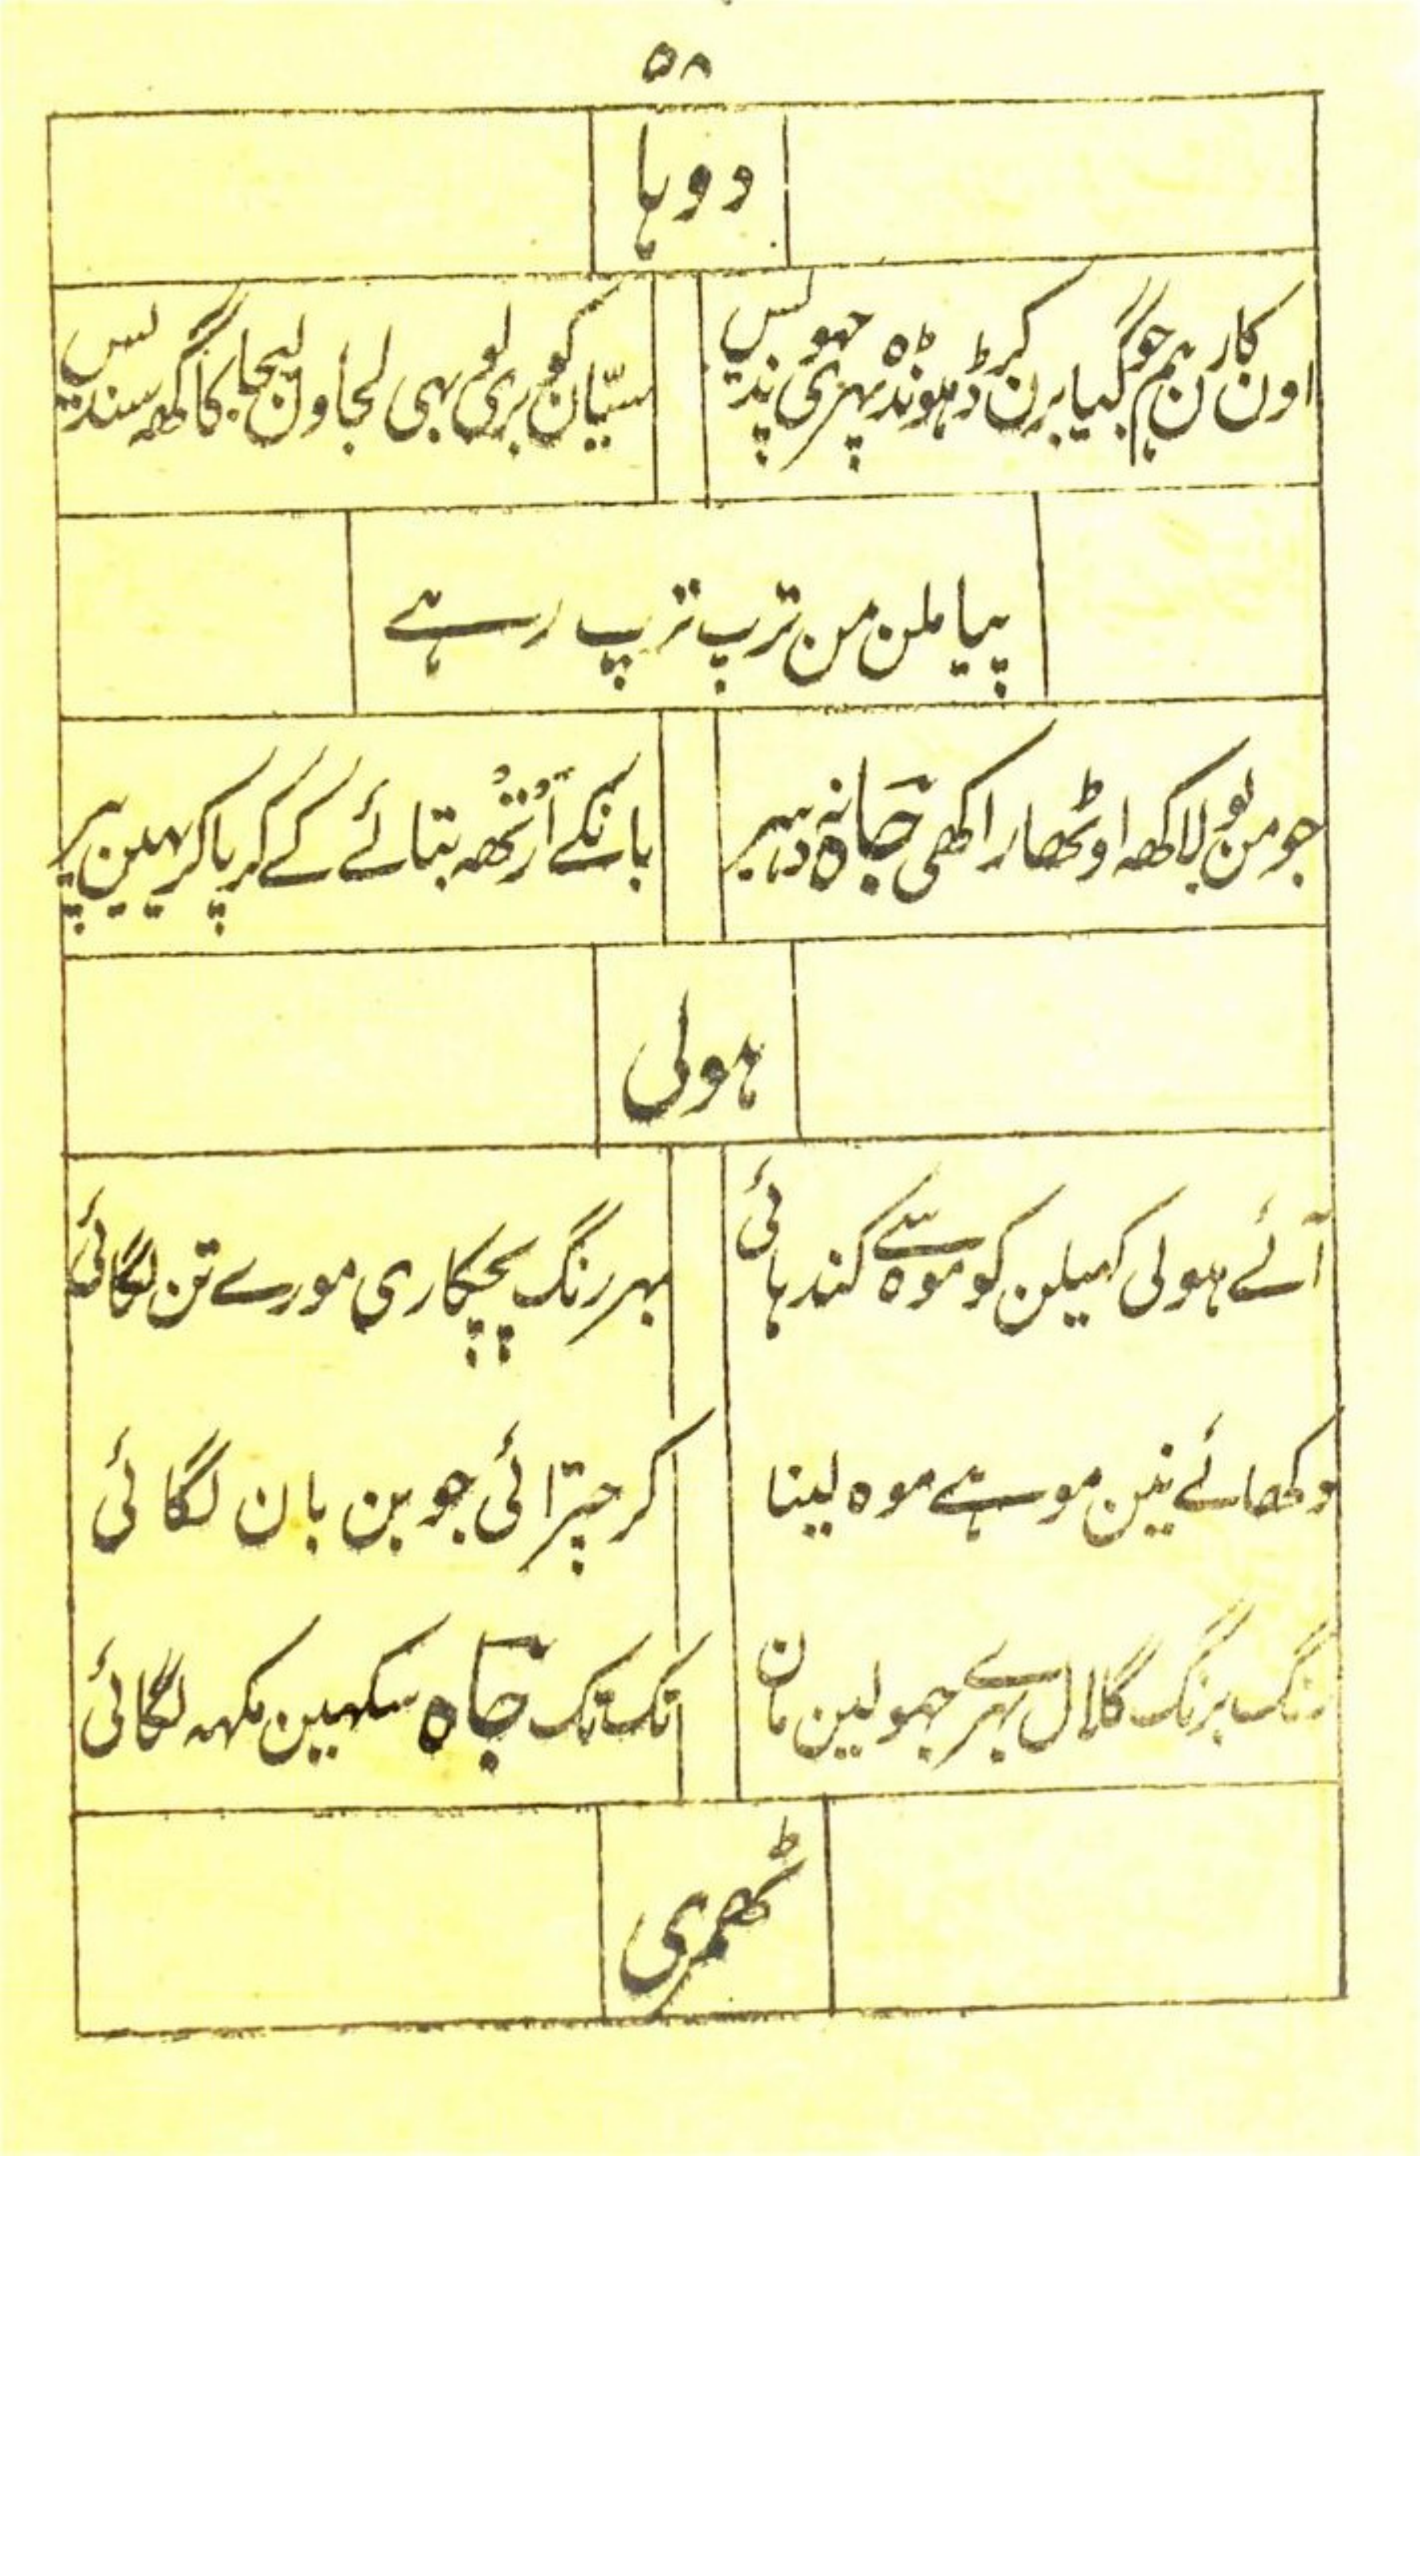 ۵۸
دوہا
اون کارن ہم جوگیا برن کر ڈہونڈہ پہری چہو
سیّان کو بری بہی لجاون لیجا کاگہہ سندیس
پیا ملن من ترپ ترپ رہے
جو من لاکھہ اوٹھا راکھی جانہ دہیر
بانکے اَرْتُھہ بتائے کے کر پا کرہین پیر
ہولی
آئے ہولی کہیلن کو موہ سے کندہائی
بہر رنگ پچکاری مورے تن لگائی
دکھائے نین موہے موہ لینا
کر چترائی جوبن بان لگائی
رنگ برنگ گلال بہرے جہولین مان
تک تک جاہ سکہین مکہہ لگائی
ٹھمری